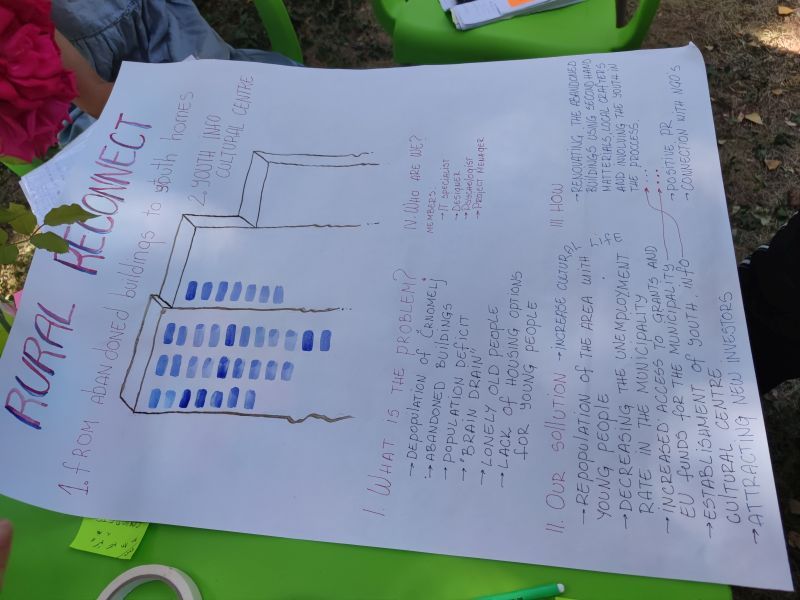 RURAL RECONNECT
1. FROM ABANDONED buildings to youth homes
2. YOUTH INFO
CULTURAL CENTRE
I. WHAT IS THE PROBLEM?
→ DEPOPULATION OF ČRNOMELJ
→ ABANDONED BUILDINGS
→ POPULATION DEFICIT
→ "BRAIN DRAIN"
→ LONELY OLD PEOPLE
→ LACK OF HOUSING OPTIONS
FOR YOUNG PEOPLE
IV. WHO ARE WE?
MEMBERS:
→ IT SPECIALIST
→ DESIGNER
→ PSYCHOLOGIST
→ PROJECT MANAGER
II. OUR SOLLUTION → INCREASE CULTUR
→ REPOPULATION OF THE AREA WITH
YOUNG PEOPLE
→ DECREASING THE UNEMPLOYMENT
RATE IN THE MUNICIPALITY
→ INCREASED ACCESS TO GRANTS AND
EU FUNDS FOR THE MUNICIPALITY
→ ESTABLISHMENT OF YOUTH. INFO
CULTURAL CENTRE
→ ATTRACTING NEW INVESTORS
III. HOW
→ RENOVATING THE ABANDONED
BUILDINGS USING SECOND HAND
MATTERIALS, LOCAL CRAFTERS
AND INVOLVING THE YOUTH IN
THE PROCESS.
→ ...
→ ...
→ POSITIVE PR
→ CONNECTION WITH NGO'S